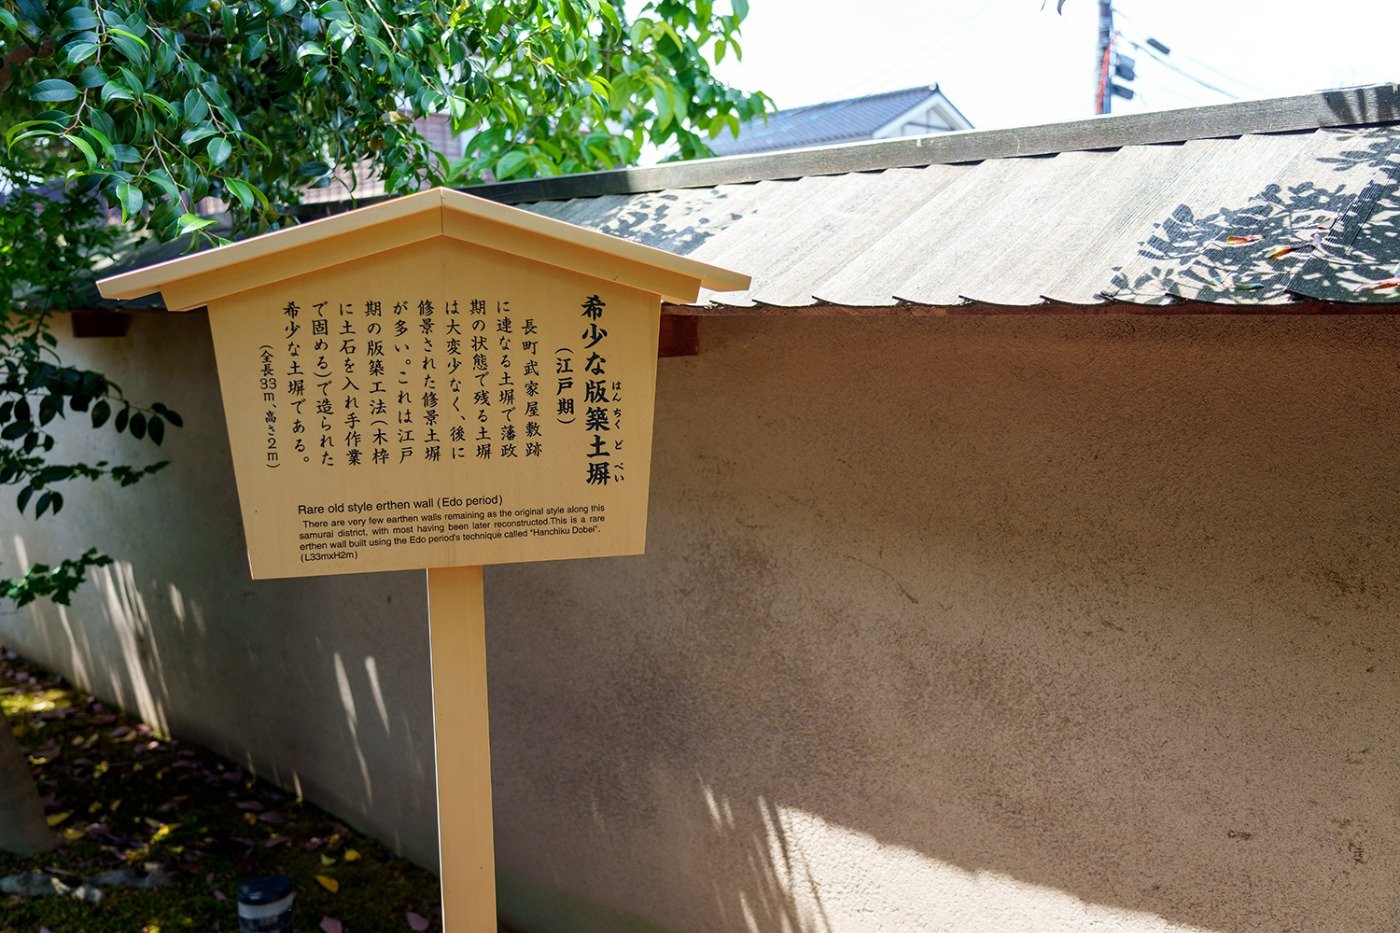 希少な版築土塀
はんちくどべい
(江戸期)
長町武家屋敷跡
に連なる土塀で藩政
期の状態で残る土塀
は大変少なく、後に
修景された修景土塀
が多い。これは江戸
期の版築工法(木枠
に土石を入れ手作業
で固める)で造られた
希少な土塀である。
(全長33m、高さ2m)
Rare old style erthen wall (Edo period)
There are very few earthen walls remaining as the original style along this
samurai district, with most having been later reconstructed.This is a rare
erthen wall built using the Edo period's technique called "Hanchiku Dobei".
(L33mxH2m)